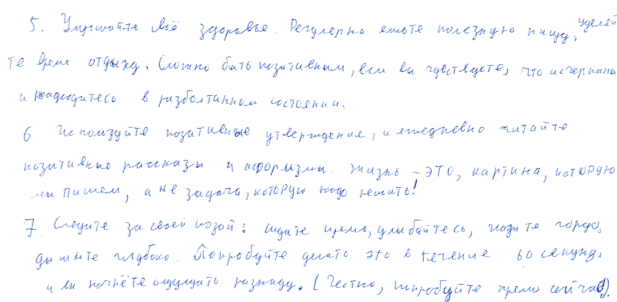 5. Улучшайте своё здоровье. Регулярно ешьте полезную пищу, уделяй
те время отдыху. Сложно быть позитивным, если вы чувствуете, что исчерпаны
и находитесь в разболтанном состоянии.
6 Используйте позитивные утверждение, и ежедневно читайте
позитивные рассказы и афоризмы. Жизнь – это, картина, которую
мы пишем, а не задача, которую надо решить!
7 Следите за своей позой: сидите прямо, улыбайтесь, ходите гордо,
дышите глубоко. Попробуйте делать это в течение 60 секунд,
и вы начнёте ощущать разницу. (Честно, попробуйте прямо сейчас).